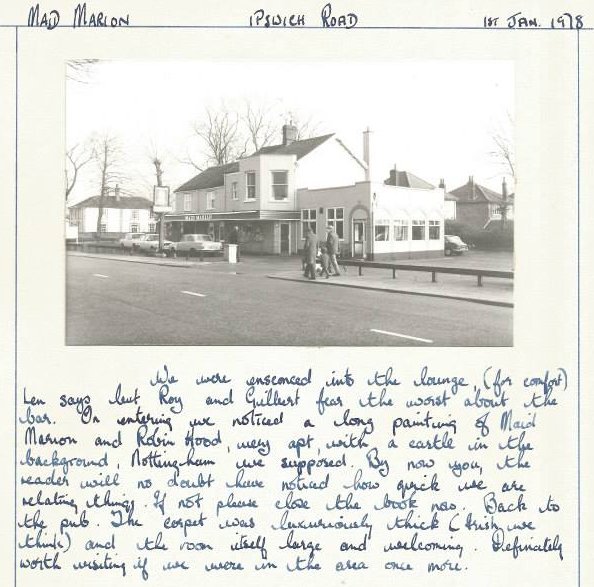 MAD MARION IPSWICH ROAD 1ST JAN. 1978
We were ensconced into the lounge, (for comfort)
Len says but Roy and Gilbert fear the worst about the
bar. On entering we noticed a long painting of Maid
Marion and Robin Hood, very apt, with a castle in the
background, Nottingham we supposed. By now you, the
reader will no doubt have noticed how quick we are
relating things. If not please close the book now. Back to
the pub. The carpet was luxuriously thick (Irish, we
think) and the room itself large and welcoming. Definately
worth visiting if we were in the area once more.